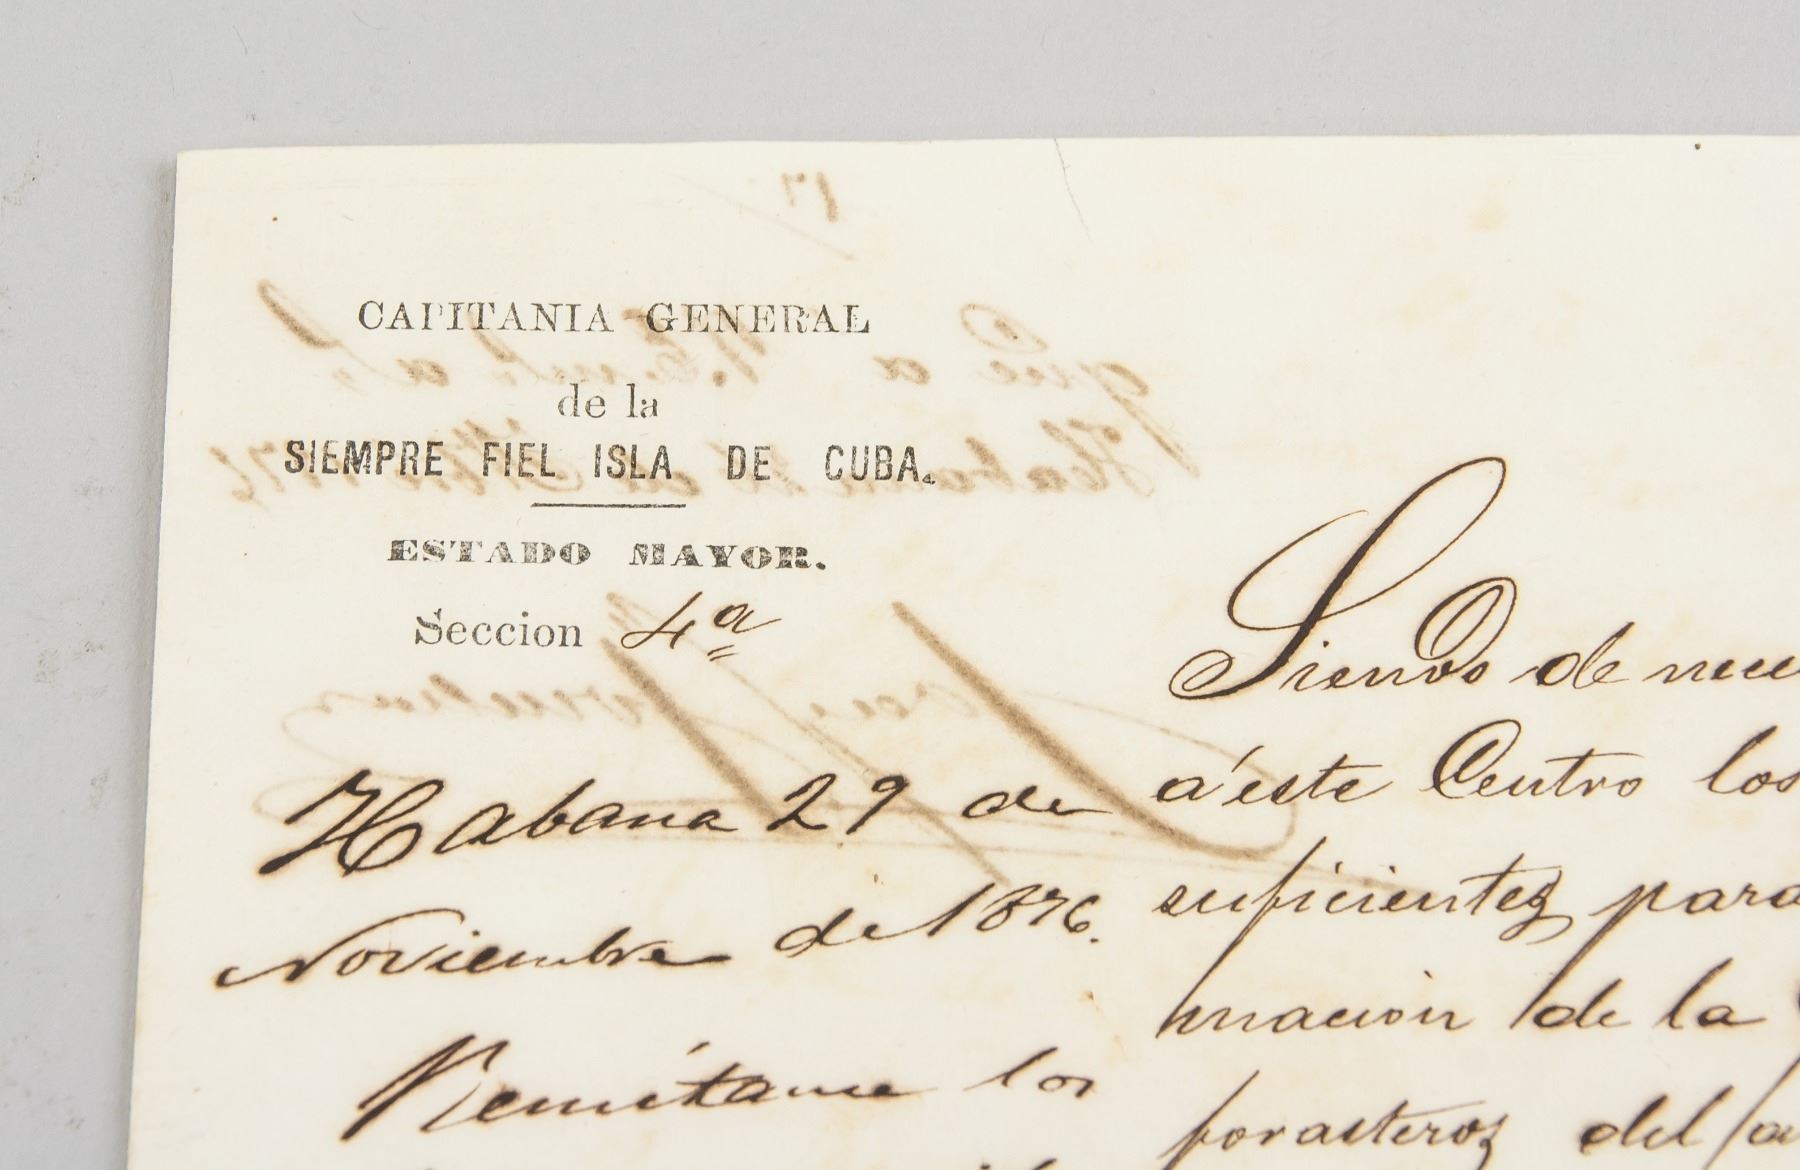 CAPITANIA GENERAL
de la
SIEMPRE FIEL ISLA DE CUBA.
ESTADO MAYOR.
Seccion 4ª
Habana 29 de
Noviembre de 1876.
Remítame los
Siendo de
á este Centro los
suficientes para
macion de la
forasteros del